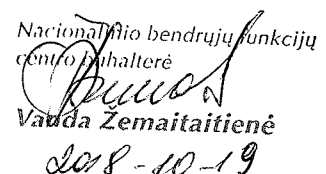 Nacionalinio bendrųjų funkcijų
centro buhalterė
Vanda Žemaitaitienė
2018-10-19